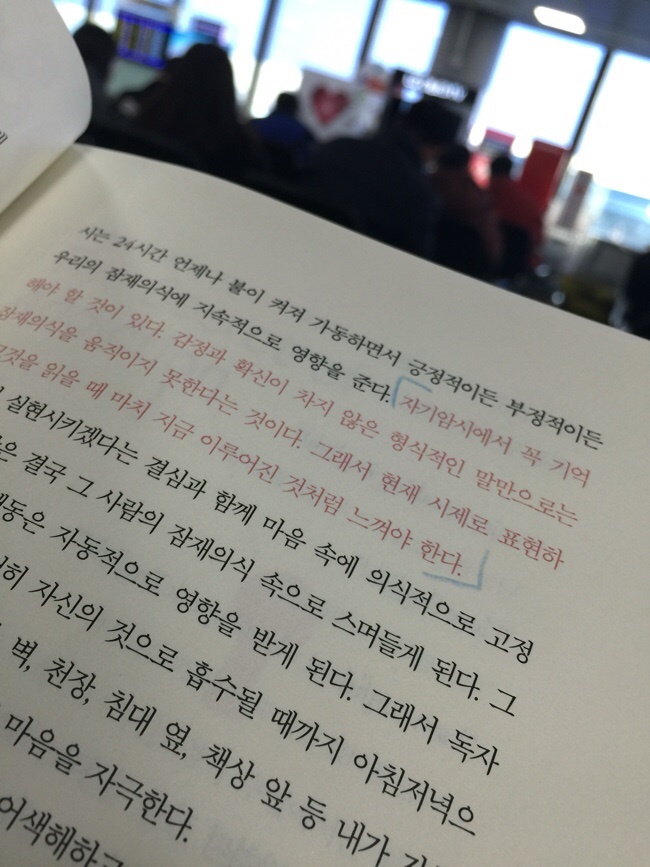 시는 24시간 언제나 불이 켜져 가동하면서 긍정적이든 부정적이든
우리의 잠재의식에 지속적으로 영향을 준다. 자기암시에서 꼭 기억
해야 할 것이 있다. 감정과 확신이 차지 않은 형식적인 말만으로는
잠재의식을 움직이지 못한다는 것이다. 그래서 현재 시제로 표현하
그것을 읽을 때 마치 지금 이루어진 것처럼 느껴야 한다.
실현시키겠다는 결심과 함께 마음 속에 의식적으로 고정
결국 그 사람의 잠재의식 속으로 스며들게 된다. 그
자동적으로 영향을 받게 된다. 그래서 독자
자신의 것으로 흡수될 때까지 아침저녁으
벽, 천장, 침대 옆, 책상 앞 등 내가
마음을 자극한다.
어색해하고